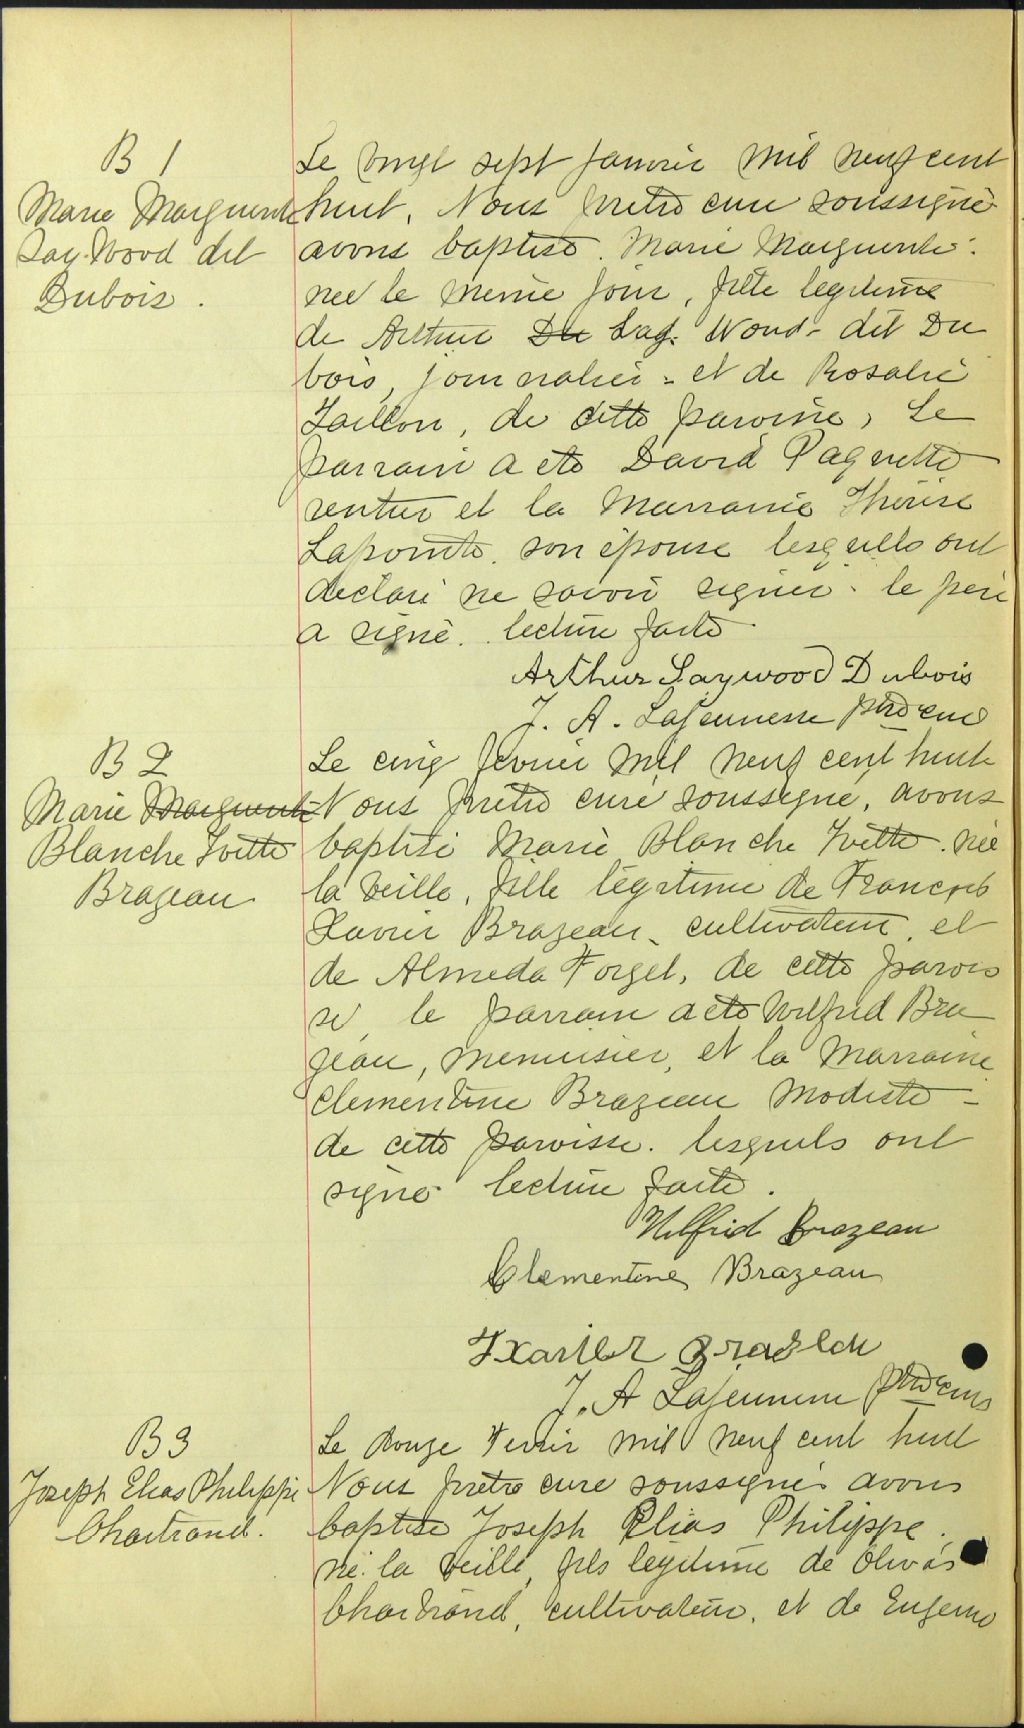 B 1
Marie Marguerite
Lay-Wood dit
Dubois.
Le vingt sept janvier mil neuf cent
huit, Nous prêtre curé soussigné
avons baptisé Marie Marguerite
née le même jour, fille légitime
de Arthur Du Lay-Wood dit Du
bois, journalier et de Rosalie
Taillon, de cette paroisse, Le
parrain a été David Paquette
rentier et la Marraine Thérèse
Lapointe son épouse lesquels ont
déclaré ne savoir signer. le père
a signé. lecture faite
Arthur Laywood Dubois
J. A. Lajeunesse ptre curé
B 2
Marie Marguerite
Blanche Ivette
Brazeau
Le cinq février mil neuf cent huit
Nous prêtre curé soussigné, avons
baptisé Marie Blanche Ivette née
la veille, fille légitime de François
Xavier Brazeau, cultivateur, et
de Almeda Forget, de cette parois
se, le parrain a été Wilfrid Bra
zeau, menuisier, et la Marraine
Clementine Brazeau Modiste
de cette paroisse. lesquels ont
signé lecture faite.
Wilfrid Brazeau
Clementine Brazeau
F Xavier Brazeau
J. A Lajeunesse ptre curé
B 3
Joseph Elias Philippe
Chartrand.
Le douze Fevrier mil neuf cent huit
Nous prêtre curé soussigné avons
baptisé Joseph Elias Philippe.
né la veille, fils légitime de Olivas
Chartrand, cultivateur, et de Eugenie